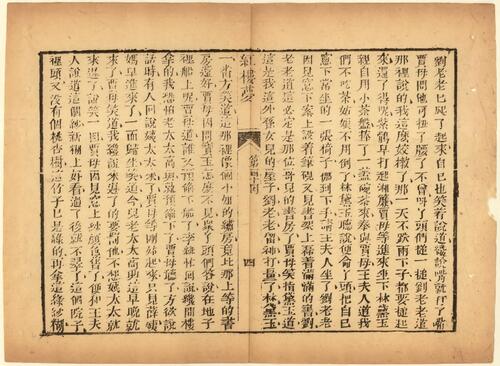 劉老老已爬了起來自己也笑着說道纔說嘴就打了嘴
賈母問他可扭了腰了不曾叫丫頭們搥一搥劉老老道
那裡說的我這麼姣嫩了那一天不跌兩下子都要搥起
來還了得呢紫鵑早打起湘簾賈母等進來坐下林黛玉
親自用小茶盤捧了一蓋碗茶來奉與賈母王夫人道我
們不吃茶姑娘不用倒了林黛玉聽說便命丫頭把自己
窗下常坐的一張椅子挪到下手請王夫人坐了劉老老
因見窗下案上設着筆硯又見書架上磊着滿滿的書劉
老老道這必定是那位哥兒的書房了賈母笑指黛玉道
這是我這外孫女兒的屋子劉老老留神打量了林黛玉
紅樓夢
第四十回
四
一番方笑道這那裡像個小姐的繡房竟比那上等的書
房還好賈母因問寶玉怎麼不見衆丫頭們答說在池子
裡船上呢賈母道誰又預備下船了李紈忙回說纔開樓
拿的我恐怕老太太高興就預備下了賈母聽了方欲說
話時有人回說姨太太來了賈母等剛站起來只見薛姨
媽早進來了一面歸坐笑道今兒老太太高興這早晚就
來了賈母笑道我纔說來遲了的要罰他不想姨太太就
來遲了說笑一回賈母因見窗上紗顏色舊了便和王夫
人說道這個紗新糊上好看過了後就不翠了這個院子
裡頭又沒有個桃杏樹這竹子已是綠的再拿這綠紗糊